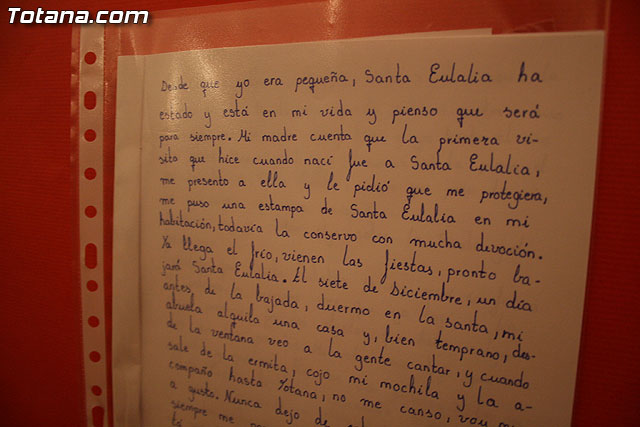 Totana.com
Desde que yo era pequeña, Santa Eulalia ha
estado y está en mi vida y pienso que será
para siempre. Mi madre cuenta que la primera vi-
sita que hice cuando nací fue a Santa Eulalia,
me presento a ella y le pidió que me protegiera,
me puso una estampa de Santa Eulalia en mi
habitación, todavía la conservo con mucha devoción.
Ya llega el frío, vienen las fiestas, pronto ba-
jará Santa Eulalia. El siete de Diciembre, un día
antes, de la bajada, duermo en la santa, mi
abuela alquila una casa y, bien temprano, des-
de la ventana veo a la gente cantar, y cuando
sale de la ermita, cojo mi mochila y la a-
compaño hasta Totana, no me canso, voy
a gusto. Nunca dejo de
siempre me